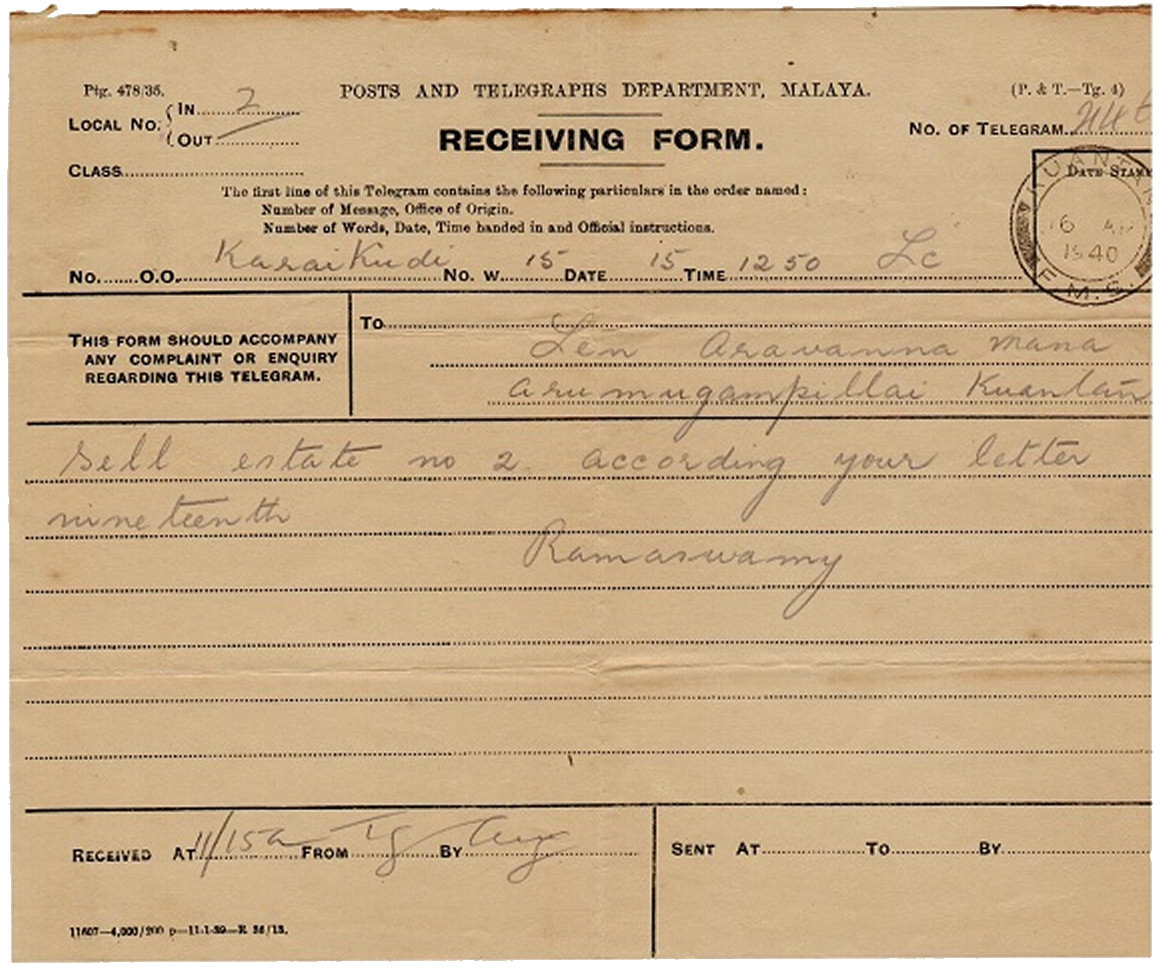 Ptg. 478/35. POSTS AND TELEGRAPHS DEPARTMENT, MALAYA. (P. & T.—Tg. 4)
LOCAL NO. IN 2
OUT
RECEIVING FORM.
NO. OF TELEGRAM
CLASS
DATE STAMP
KUANTAN
16 AP
1940
F.M.S.
The first line of this Telegram contains the following particulars in the order named:
Number of Message, Office of Origin.
Number of Words, Date, Time handed in and Official instructions.
NO. O.O. Karaikudi NO. W. 15 DATE 15 TIME 1250 Lc
THIS FORM SHOULD ACCOMPANY
ANY COMPLAINT OR ENQUIRY
REGARDING THIS TELEGRAM.
TO
Len Aravanna Mana
Arumugampillai Kuantan
Sell estate no 2 according your letter
nineteenth
Ramaswamy
RECEIVED AT 11/15a FROM Tg BY
SENT AT TO BY
11607—4,000/200 p—11-1-39—R 36/13.